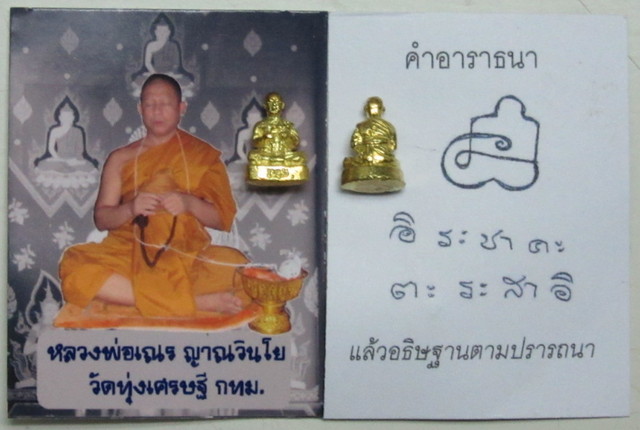 หลวงพ่อเณร ญาณวินโย
วัดทุ่งเศรษฐี กทม.
คำอาราธนา
อิ ระ ชา คะ
ตะ ระ สา อิ
แล้วอธิษฐานตามปรารถนา